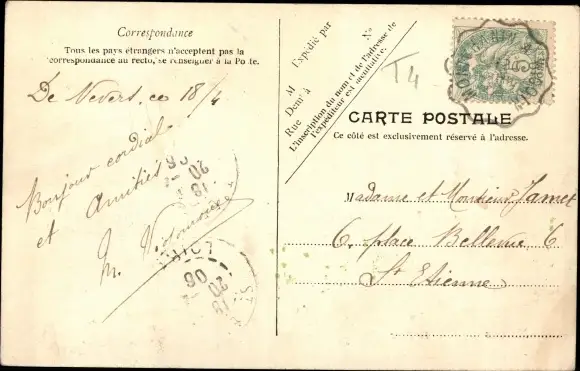 Correspondance
Tous les pays étrangers n'acceptent pas la
correspondance au recto, se renseigner à la Poste.
De Nevers, ce 18/4
Bonjour cordial
et Amitiés
M.
M Expédié par
Demt à
Rue No
L'inscription du nom et de l'adresse de
l'expéditeur est facultative.
T4
CARTE POSTALE
Ce côté est exclusivement réservé à l'adresse.
Madame et Monsieur Jamet
6, place Bellevue 6
St Etienne